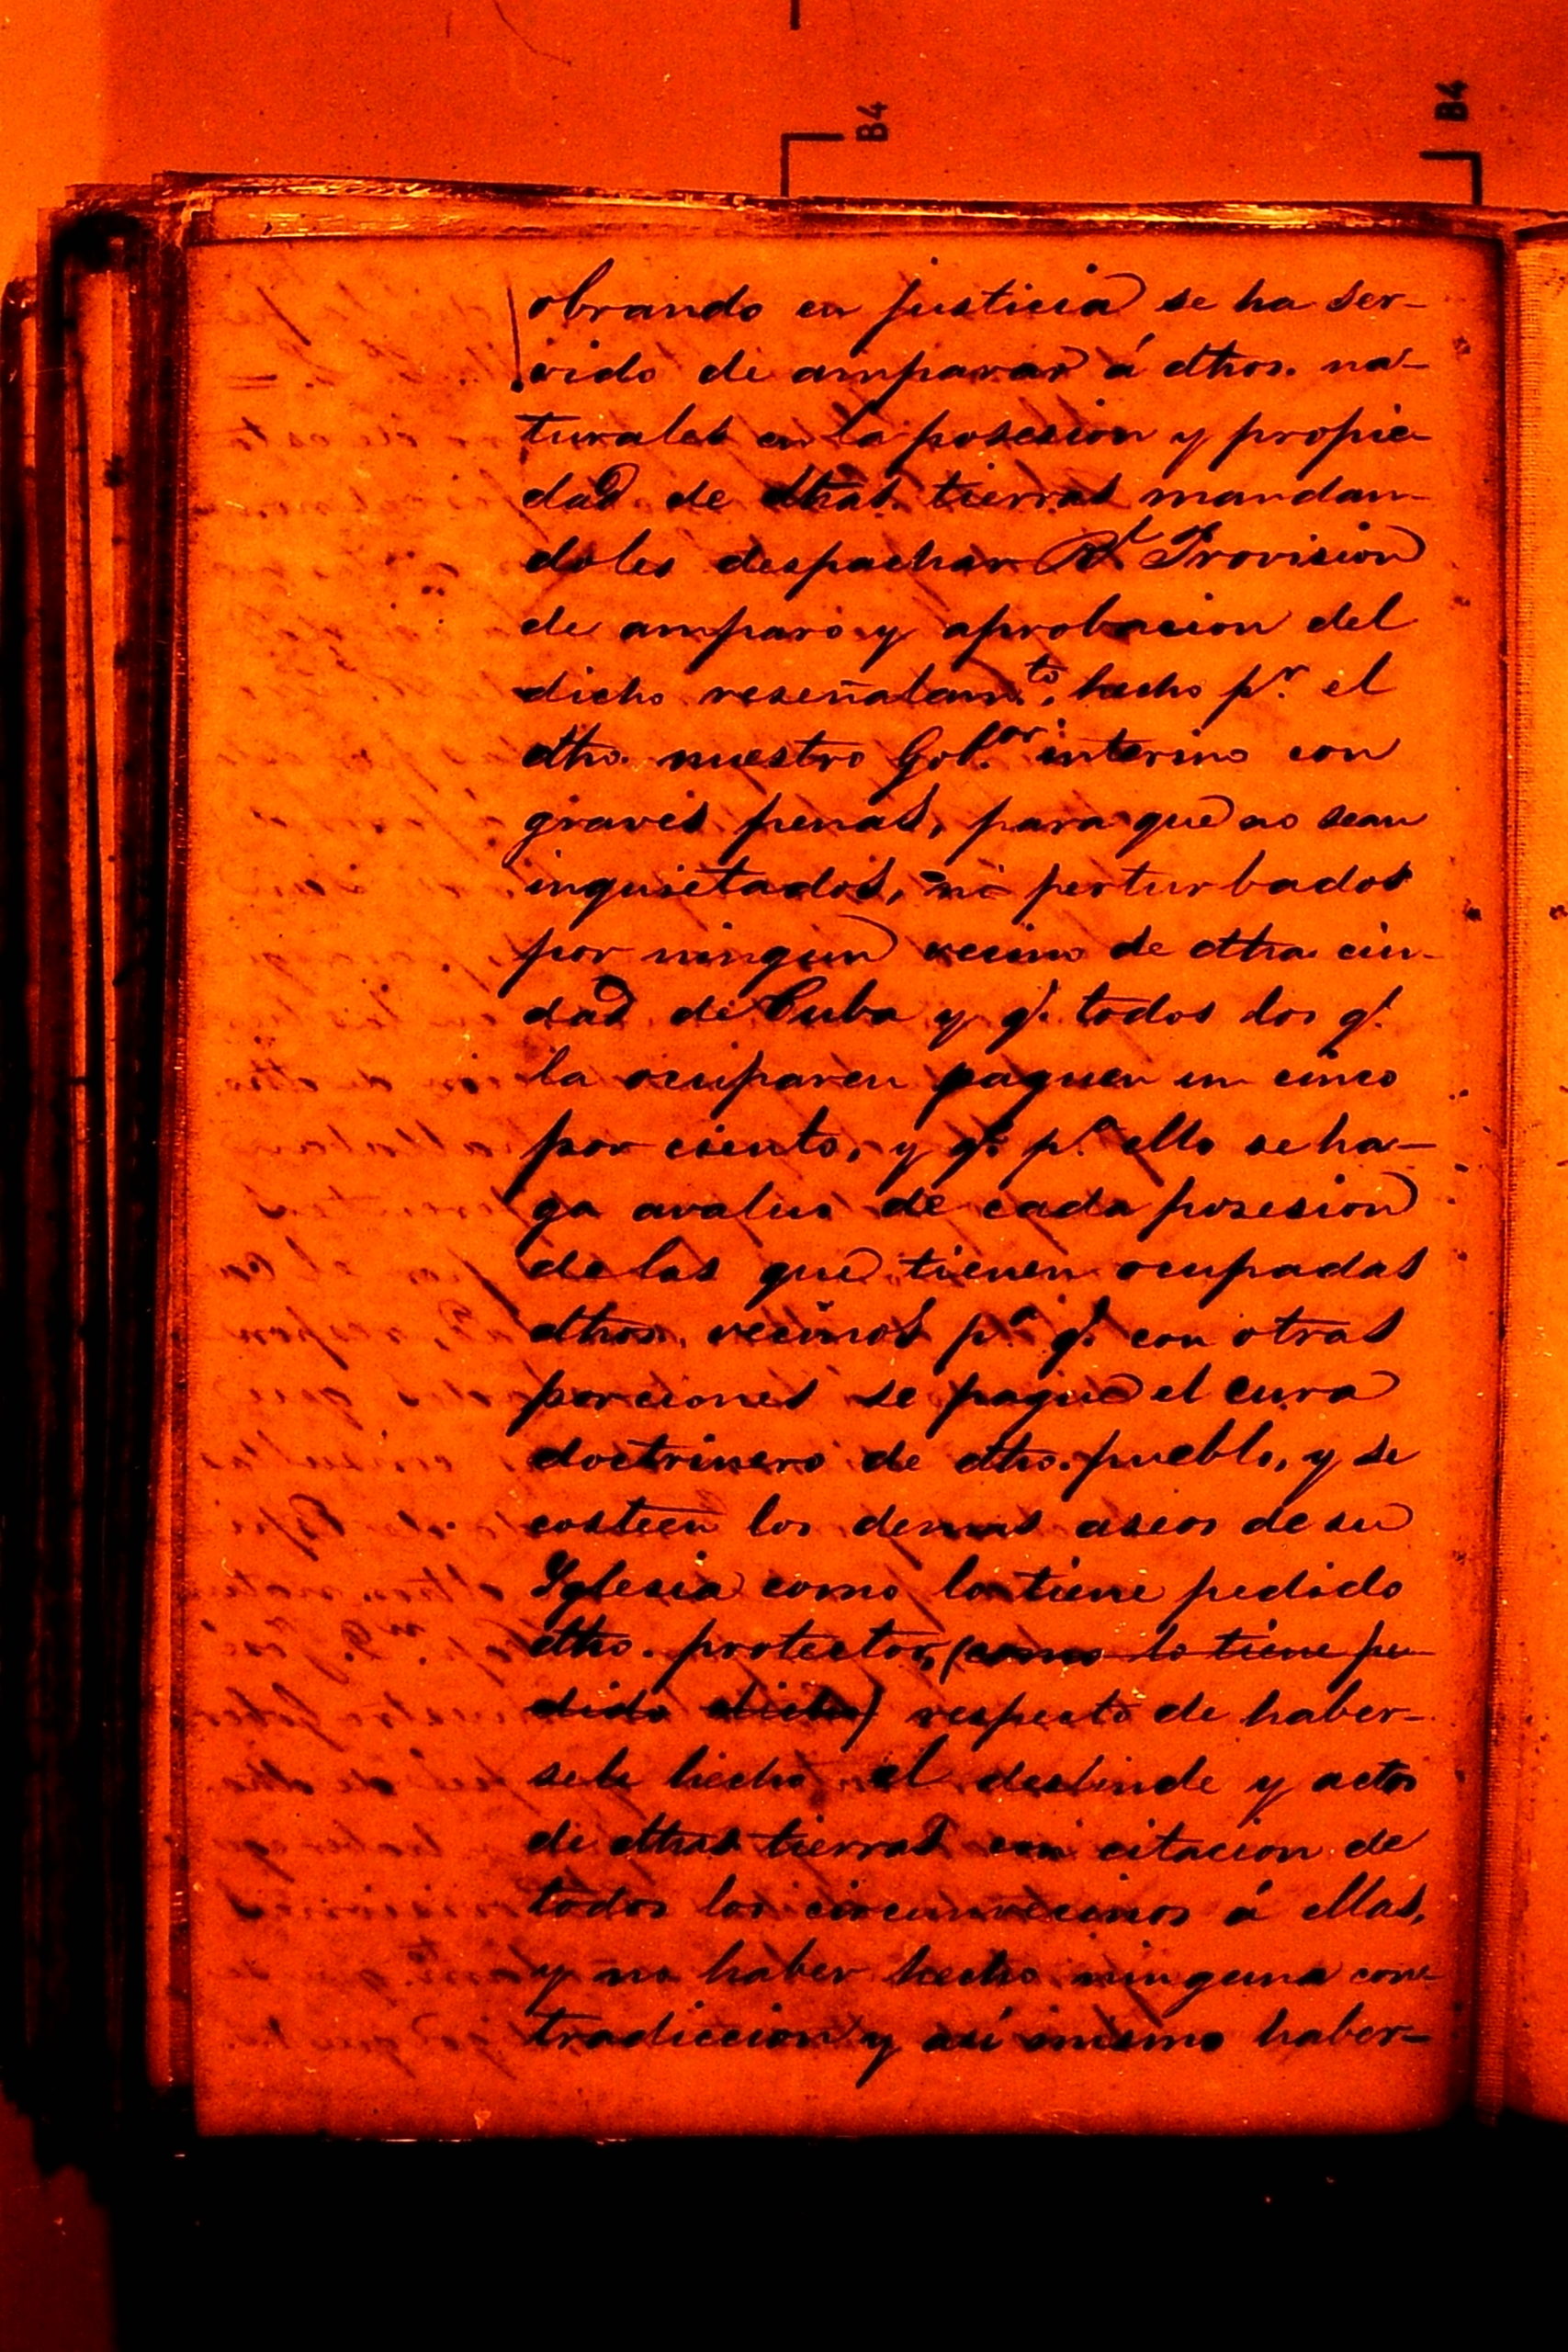 B4
B4
obrando en justicia se ha ser-
vido de amparar á dthos. na-
turales en la posesion y propie-
dad de dthas. tierras mandan-
doles despachar Rl Provision
de amparo y aprobacion del
dicho reseñalam.to, hecho pr. el
dtho. nuestro Gob.or interino con
graves penas, para que no sean
inquietados, ni perturbados
por ningun vecino de dtha. ciu-
dad de Cuba y q.e todos los q.e
la ocuparen paguen un cinco
por ciento, y q.e p.a ello se ha-
ga avaluo de cada posesion
de las que tienen ocupadas
dthos. vecinos p.a q.e con otras
porciones se pague el cura
doctrinero de dtho. pueblo, y se
costeen los demas aseos de su
Yglesia como lo tiene pedido
dtho. protector, (como lo tiene pe-
dido dicho) respecto de haber-
sele hecho el deslinde y actos
de dthas tierras con citacion de
todos los circunvecinos á ellas,
y no haber hecho ninguna con-
tradiccion y asi mismo haber-